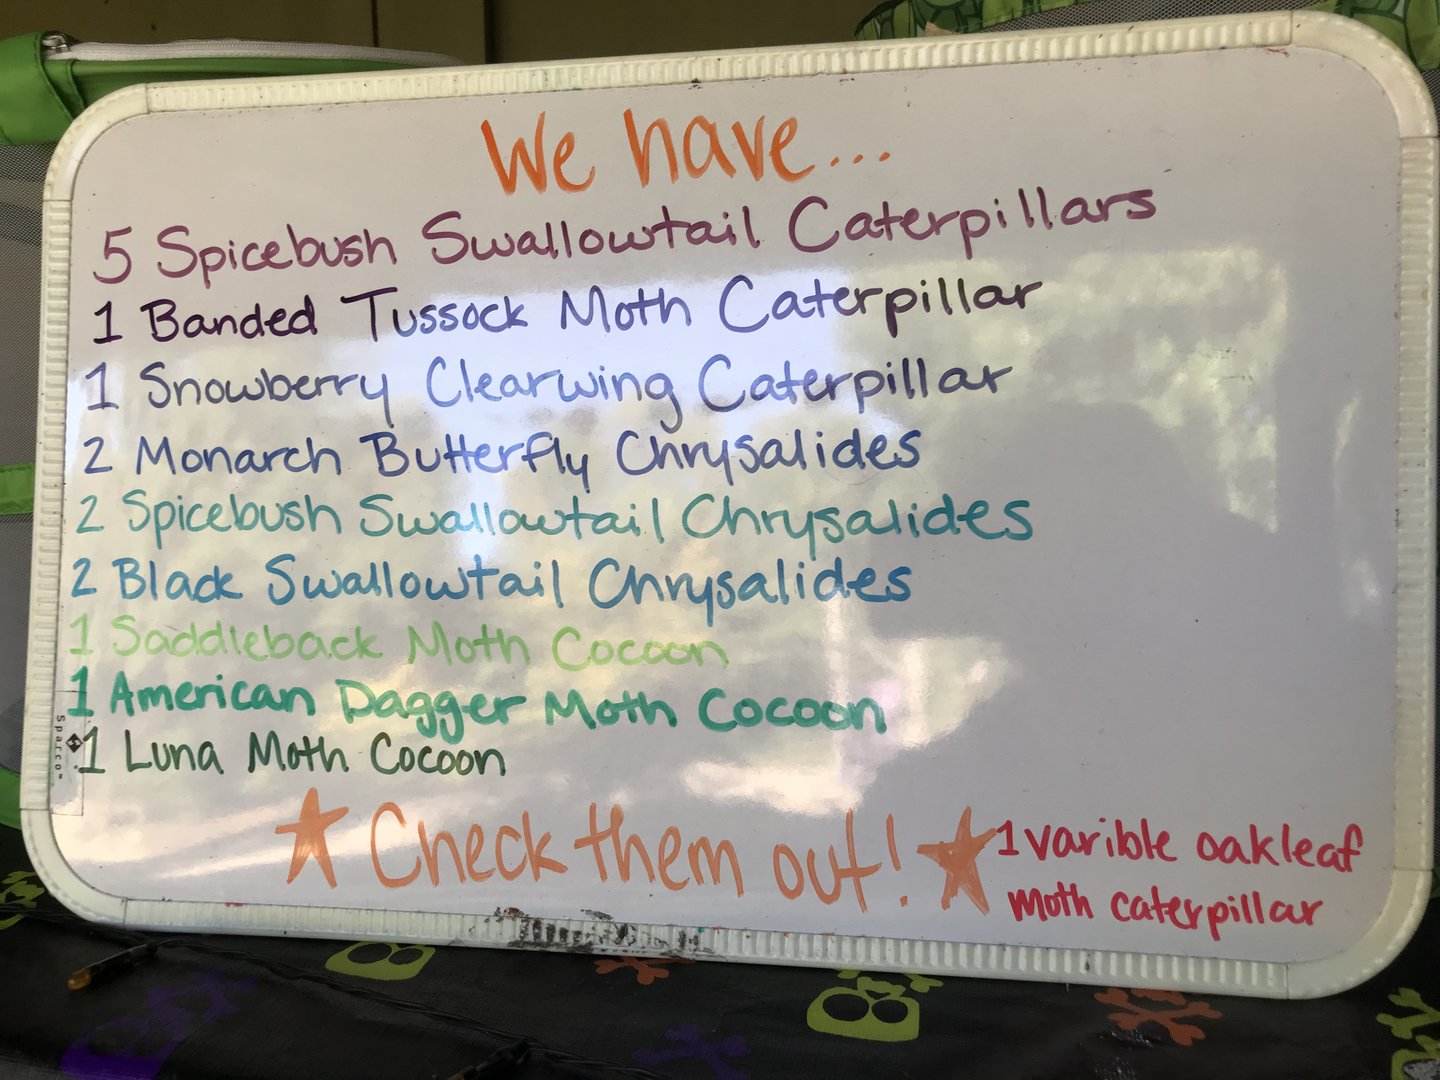 We have...
5 Spicebush Swallowtail Caterpillars
1 Banded Tussock Moth Caterpillar
1 Snowberry Clearwing Caterpillar
2 Monarch Butterfly Chrysalides
2 Spicebush Swallowtail Chrysalides
2 Black Swallowtail Chrysalides
1 Saddleback Moth Cocoon
1 American Dagger Moth Cocoon
1 Luna Moth Cocoon
Sparco™
Check them out!
1 varible oakleaf
moth caterpillar